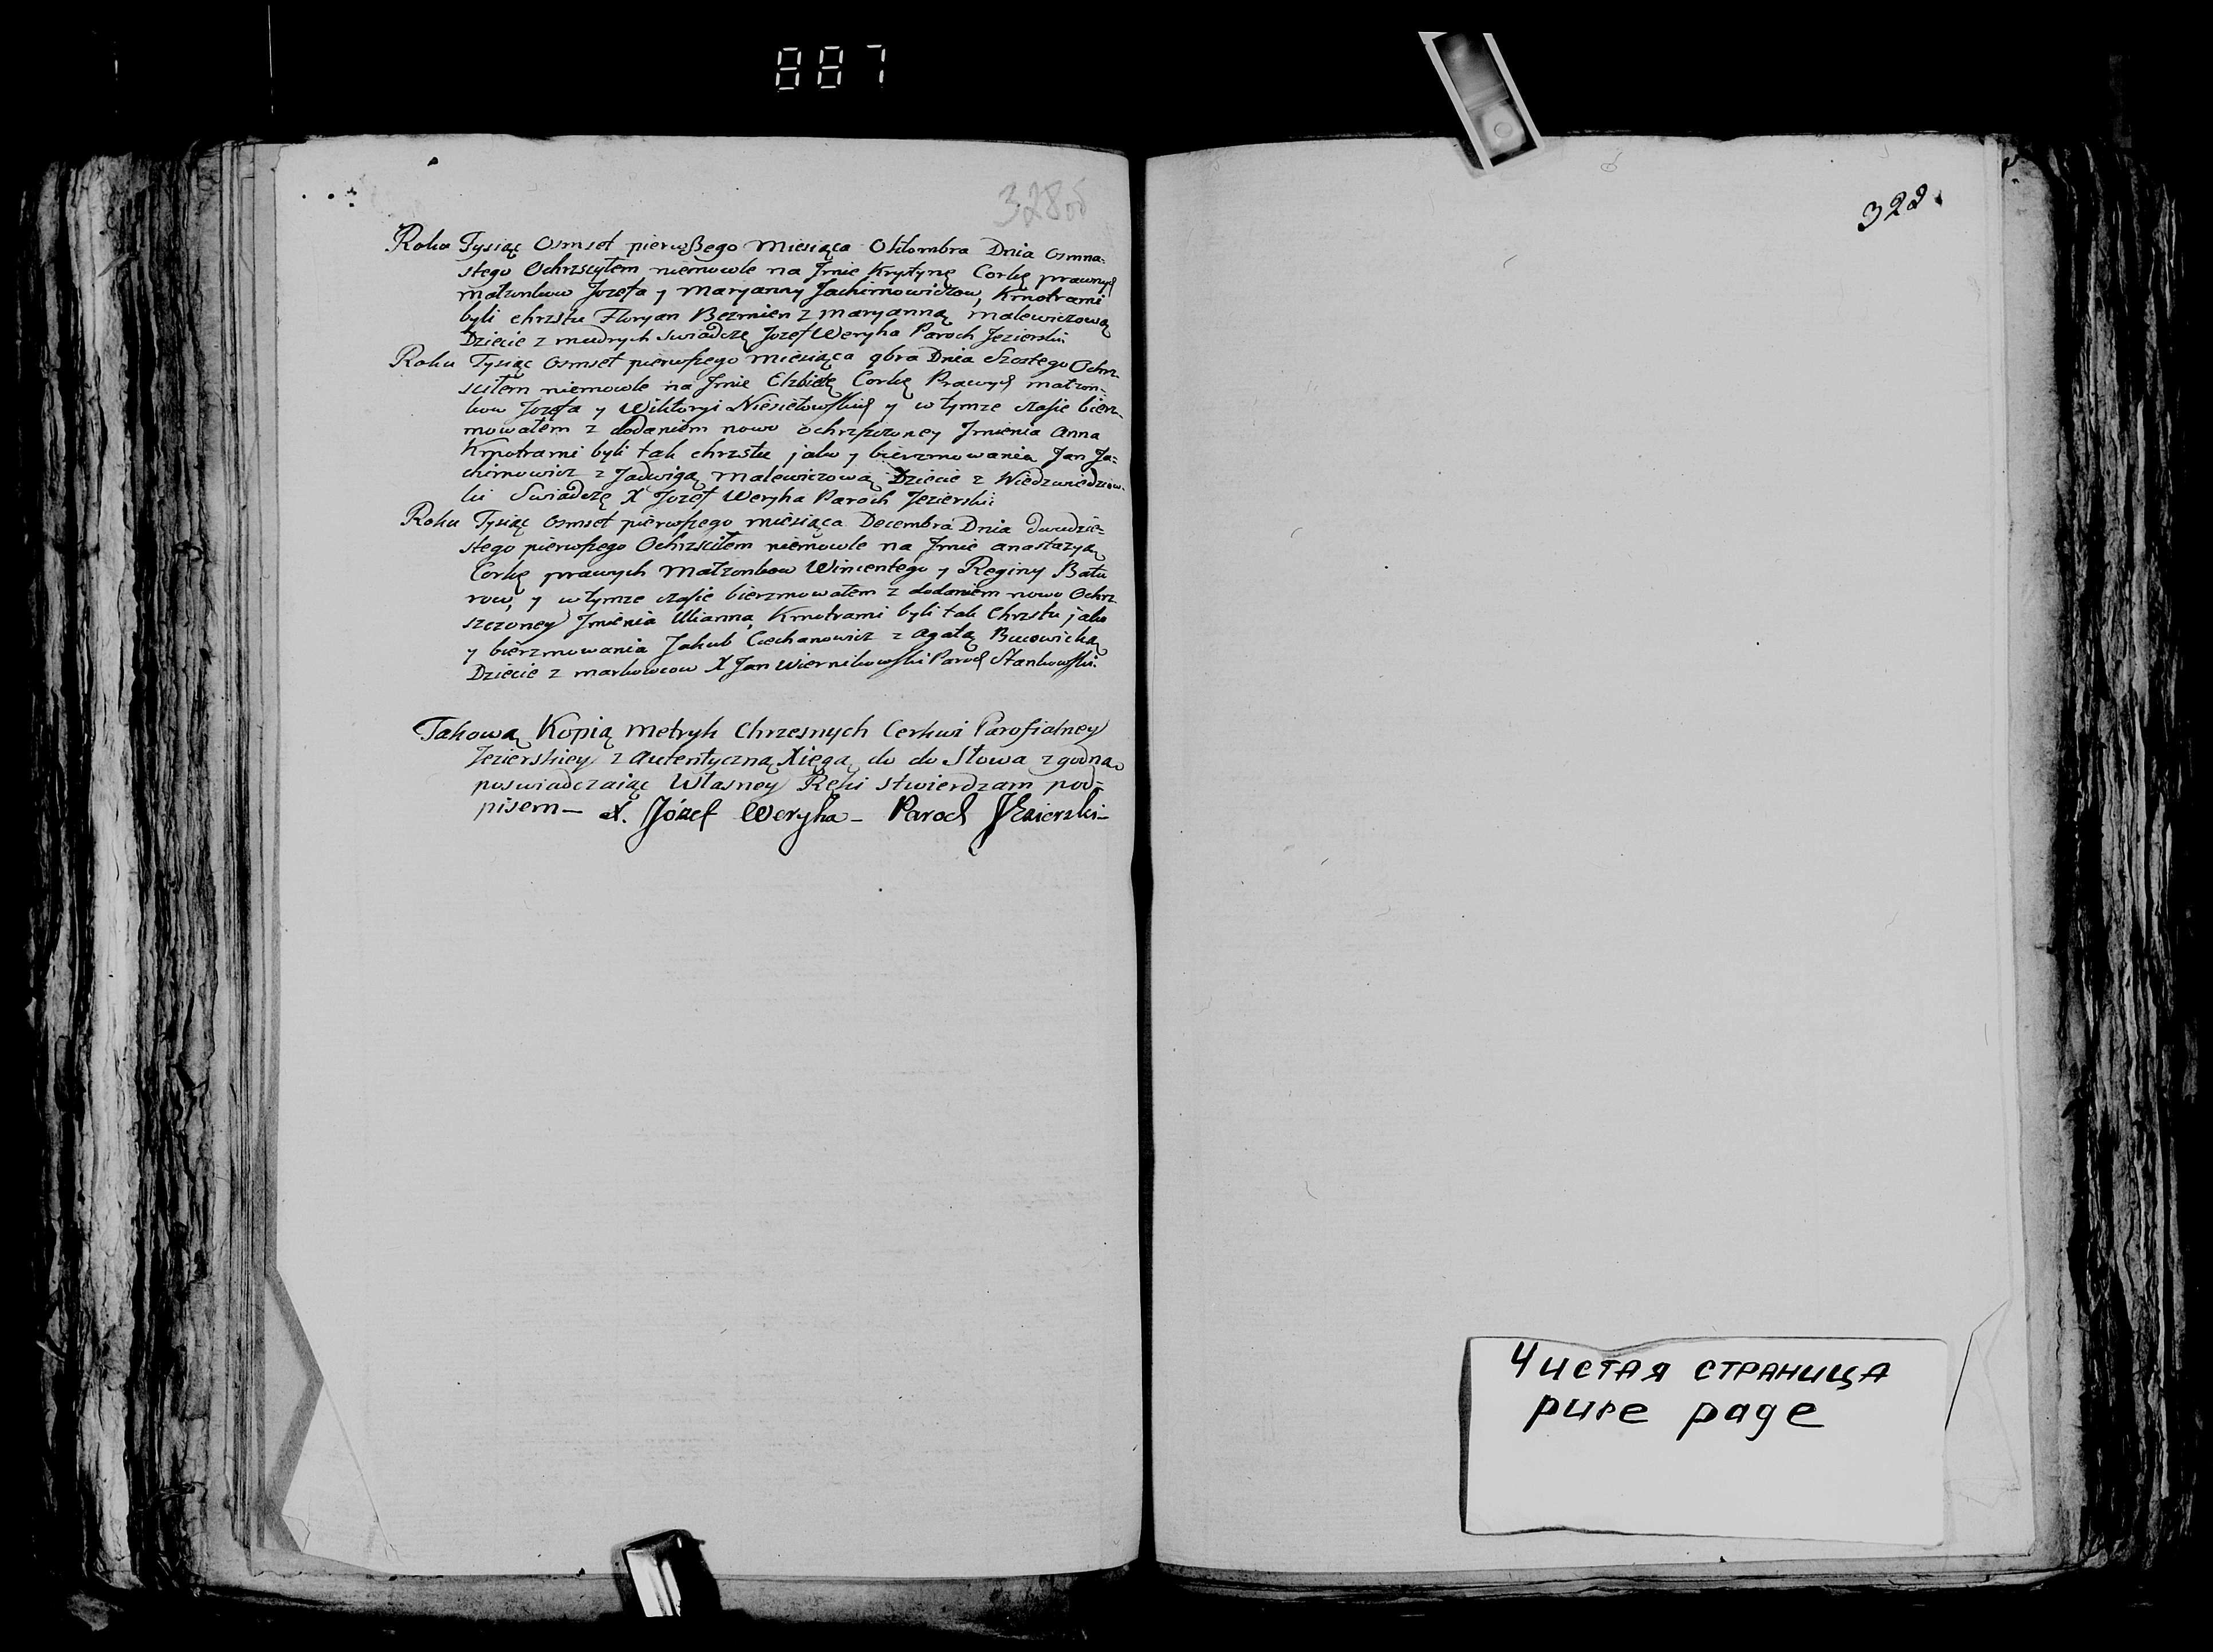 887
328 об
Roku Tysiąc Osmset pierwszego Miesiąca Oktombra Dnia Osmna-
stego Ochrzscyłem niemowle na Jmie Krystynę Corkę prawnych
małzonkow Jozefa y Maryanny Jachimowiczow, Kmotrami
byli chrzstu Floryan Bezmien z Maryanną Malewiczową
Dziecie z mudrych swiadczę Jozef Weryha Paroch Jezierski
Roku Tysiąc Osmset pierwszego miesiąca 9bra Dnia Szostego Ochrz-
sciłem niemowle na Jmie Elzbietę Corkę Prawych małzon-
kow Jozefa y Wiktoryi Niesiełowskich y w tymze czasie bierz-
mowałem z dodaniem nowo ochrzszczoney Jmienia Anna
Kmotrami byli tak chrzstu jako y bierzmowania Jan Ja-
chimowicz z Jadwigą Malewiczową Dziecie z
Swiadczę X Jozef Weryha Paroch Jezierski
Roku Tysiąc Osmset pierwszego miesiąca Decembra Dnia dwudzie-
stego pierwszego Ochrzsciłem niemowle na Jmie anastazyą
Corkę prawych Małzonkow Wincentego y Reginy Batu
row, y w tymze czasie bierzmowałem z dodaniem nowo Ochrz
szczoney Jmienia Ulianna Kmotrami byli tak Chrzstu jako
y bierzmowania Jakub Ciechanowicz z Agatą Bucowicką
Dziecie z markowcow X Jan Wiernikowski Paroch Stankowski
Takową Kopią Metryk Chrzesnych Cerkwi Parofialney
Jezierskiey z Autentyczną Xięgą do do Słowa zgodną
poswiadczaiąc Własney Ręki stwierdzam pod-
pisem— X. Józef Weryha— Paroch Jezierski—
329.
Чистая страница
pure page